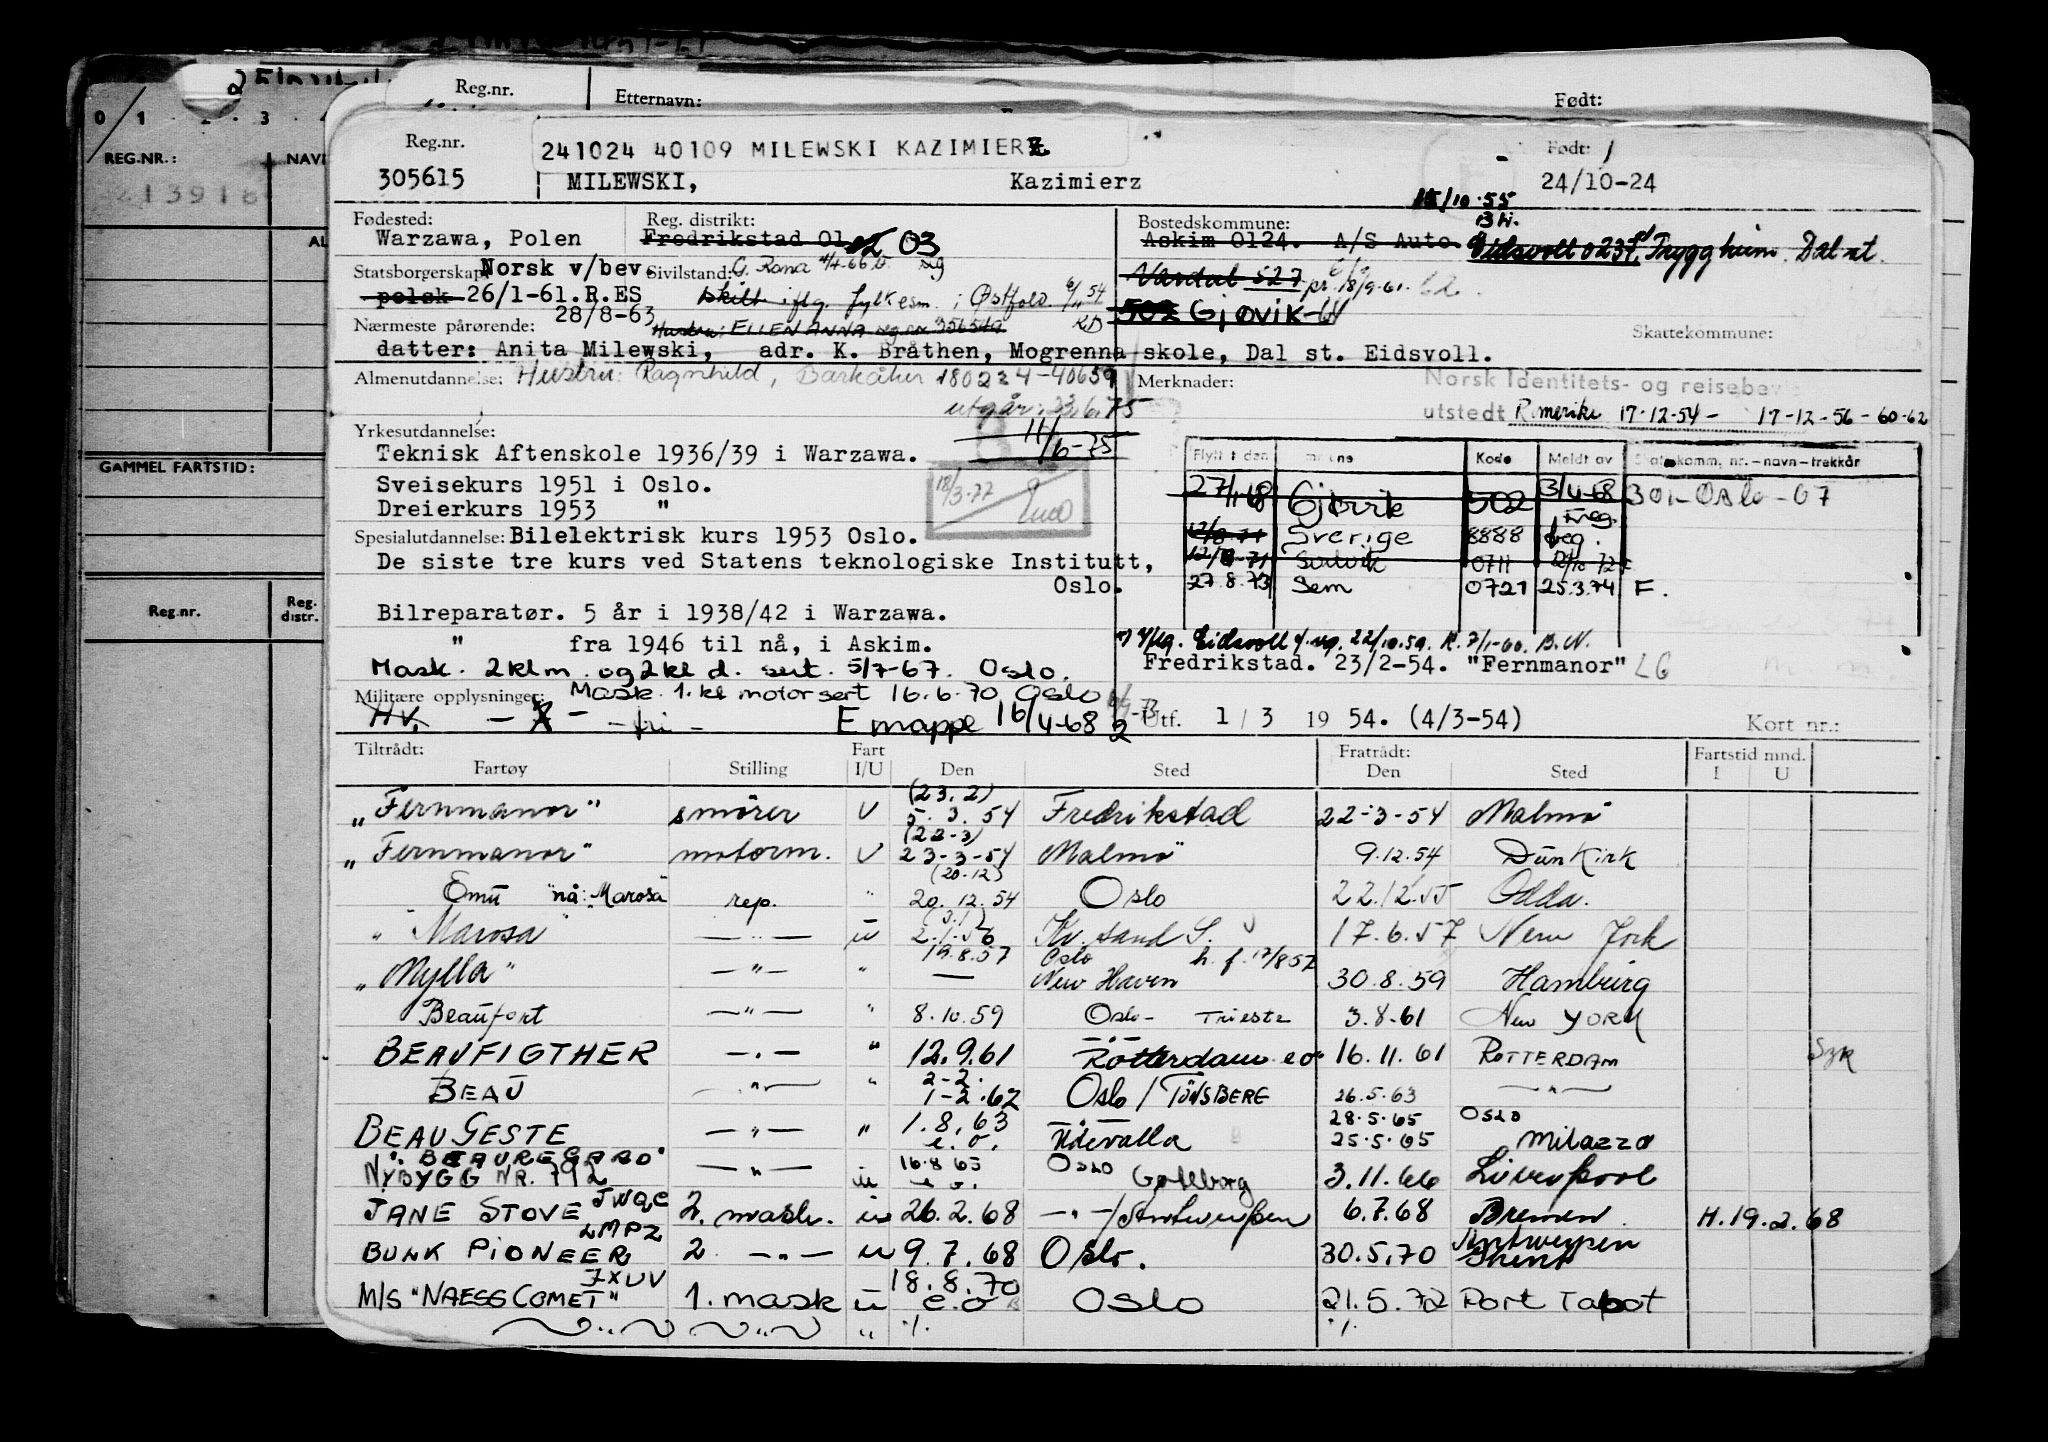 Reg.nr. Etternavn: Født:
0 1 2 3
REG.NR.:
213918
GAMMEL FARTSTID:
Reg.nr. Reg. distr.
Reg.nr. 241024 40109 MILEWSKI KAZIMIERZ Født:
305615 MILEWSKI, Kazimierz 24/10-24
Fødested: Reg. distrikt: Bostedskommune: 15/10.55
Warzawa, Polen Fredrikstad 01 02 03 Askim 0124. A/S Auto. Eidsvoll 0237 Trygg heim. Dal st.
Statsborgerskap: Norsk v/bev. Sivilstand: G. Rana 4/4-66 sig Vardal 527 pr. 18/9-61. 62
polsk 26/1-61.R.ES skilt iflg. fylkesm. i Østfold. 6/11 54 502 Gjøvik-64
28/8-63
Nærmeste pårørende: Hustru: ELLEN ANNA reg.nr. 356549 KD Skattekommune:
datter: Anita Milewski, adr. K. Bråthen, Mogrenna skole, Dal st. Eidsvoll.
Almenutdannelse: Hustru: Ragnhild, Barkåker 180224-40659 Merknader: Norsk Identitets- og reisebevis
utgår: 23.6.75 utstedt Romerike 17-12-54 - 17-12-56-60-62
Yrkesutdannelse: 11/6-75
Teknisk Aftenskole 1936/39 i Warzawa.
Sveisekurs 1951 i Oslo. 18/3-77
Dreierkurs 1953 "
Spesialutdannelse: Bilelektrisk kurs 1953 Oslo.
De siste tre kurs ved Statens teknologiske Institutt,
Oslo.
Bilreparatør. 5 år i 1938/42 i Warzawa.
" fra 1946 til nå, i Askim.
Mask. 2 kl m. og 2 kl d. sert. 5/7-67. Oslo.
Flytt t den Kode Meldt av Skattekomm. nr. - navn - trekkår
27/1-68 Gjøvik 502 3/4-68 301 - Oslo - 07
12/8-71 Sverige 8888 freg.
12/8-71 0711
27.8.73 Sem 0721 25.3.74 F.
Eidsvoll f.reg. 22/10.59. K. 7/1-60. B.N.
Fredrikstad. 23/2-54. "Fernmanor" LG
Militære opplysninger: Mask. 1. kl motor sert 16.6.70 Oslo
HV. - fri - E mappe 16/4-68 2 Utf. 1/3 1954. (4/3-54) Kort nr.:
Tiltrådt: Fart Fratrådt: Fartstid mnd.
Fartøy Stilling I/U Den Sted Den Sted I U
"Fernmanor" smører U (23.2) 5.3.54 Fredrikstad 22-3-54 Malmö
"Fernmanor" motorm. U (22-3) 23-3-54 Malmö 9.12.54 Dunkirk
Emu nå: "Marosa" rep. " (20-12) 20.12.54 Oslo 22.12.55 Odda.
" Marosa " - " - u (3.1) 2.1.56 Kr.sand S. 17.6.57 New York
"Mylla" - " - " 19.8.57 Oslo New Haven h.f. 17/8 57 30.8.59 Hamburg
Beaufort - " - " 8.10.59 Oslo - TRIESTE 3.8.61 New YORK
BEAUFIGTHER - " - " 12.9.61 Rotterdam e.o. 16.11.61 ROTTERDAM
BEAU - " - " 2-2. 1-2.62 Oslo / TÖNSBERG 26.5.63 - " -
BEAU GESTE - " - " 1.8.63 e.o. Udevalla 28.5.65 25.5.65 OSLO Milazzo
"BEAUREGARD"
NYBYGG NR. 792 - " - u 16.8.65 e.o. OSLO Gøteborg 3.11.66 Liverpool
JANE STOVE JWQC 2. mask. u 26.2.68 - " - / Antwerpen 6.7.68 Bremen. H.19.2.68
BULK PIONEER LMPZ 2. - " - u 9.7.68 Oslo. 30.5.70 Antwerpen Ghent
M/S "NAESS COMET" JXUV 1. mask u 18.8.70 e.o Oslo 21.5.72 Port Tabot